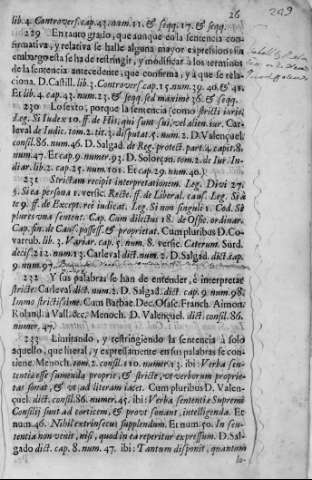 26
249
lib. 4. Controvers. cap. 43. num. 21. & seqq. 17. & seqq.
229 En tanto grado, que aunque en la sentencia con-
firmativa, y relativa se halle alguna mayor expression: sin
embargo esta se ha de restringir, y modificar à los terminos
de la sentencia antecedente, que confirma, y à que se rela-
ciona. D. Castill. lib. 3. Controvers. cap. 15. num. 39. 40. & 41.
Et lib. 4. cap. 43. num. 23. & seqq. sed maximè 36. & seqq.
230 Lo sexto, porque la sentencia (como stricti iuris,
Leg. Si Index 10. ff. de His, qui sunt sui, vel alien. iur. Car-
leval de Iudic. tom. 2. tit. 3. disputat. 5. num. 2. D. Valençuel.
consil. 86. num. 46. D. Salgad. de Reg. protect. part. 4. capit. 8.
num. 47. Et cap. 9. numer. 93. D. Solorçon. tom. 2. de Iur. In-
diar. lib. 2. cap. 25. num. 101. Et cap. 29. num. 46.)
231 Strictam recipit interpretationem. Leg. Divi 27.
§. Si ea persona 1. versic. Rectè. ff. de Liberal. caus. Leg. Si à
te 9. ff. de Except. rei iudicat. Leg. Si non singuli 1. Cod. Si
plures una sentent. Cap. Cum dilectus 18. de Offic. ordinar.
Cap. fin. de Caus. possess. & proprietat. Cum pluribus D. Co-
varrub. lib. 3. Variar. cap. 5. num. 8. versic. Caterum. Surd.
decis. 212. num. 13. Carleval dict. num. 2. D. Salgad. dict. cap.
9. num. 97.
232 Y sus palabras se han de entender, è interpretar
strictè: Carleval dict. num. 2. D. Salgad. dict. cap. 9. num. 98.
Immò strictissimè. Cum Barbac. Dec. Ofasc. Franch. Aimon.
Roland. à Vall. &c. Menoch. D. Valençuel. dict. consil. 86.
numer. 47.
233 Limitando, y restringiendo la sentencia à solo
aquello, que literal, y expressamente en sus palabras se con-
tiene. Menoch. tom. 2. consil. 110. numer. 13. ibi: Verba sen-
tentia esse sumenda propriè, & strictè, ut verborum proprie-
tas sonat, & ut ad literam iacet. Cum pluribus D. Valen-
çuel. dict. consil. 86. numer. 45. ibi: Verba sententia Supremi
Consilij sunt ad corticem, & prout sonant, intelligenda. Et
num. 46. Nihil extrinsecus supplendum. Et num. 50. In sen-
tentia non venit, nisi, quod in ea reperitur expressum. D. Sal-
gado dict. cap. 8. num. 47. ibi: Tantum disponit, quantum
lo-